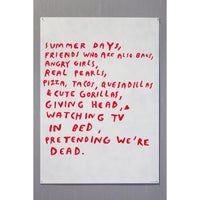 SUMMER DAYS,
FRIENDS WHO ARE ALSO BABS,
ANGRY GIRLS,
REAL PEARLS,
PIZZA, TACOS, QUESADILLAS
& CUTE GORILLAS,
GIVING HEAD, &
WATCHING TV
IN BED,
PRETENDING WE'RE
DEAD.